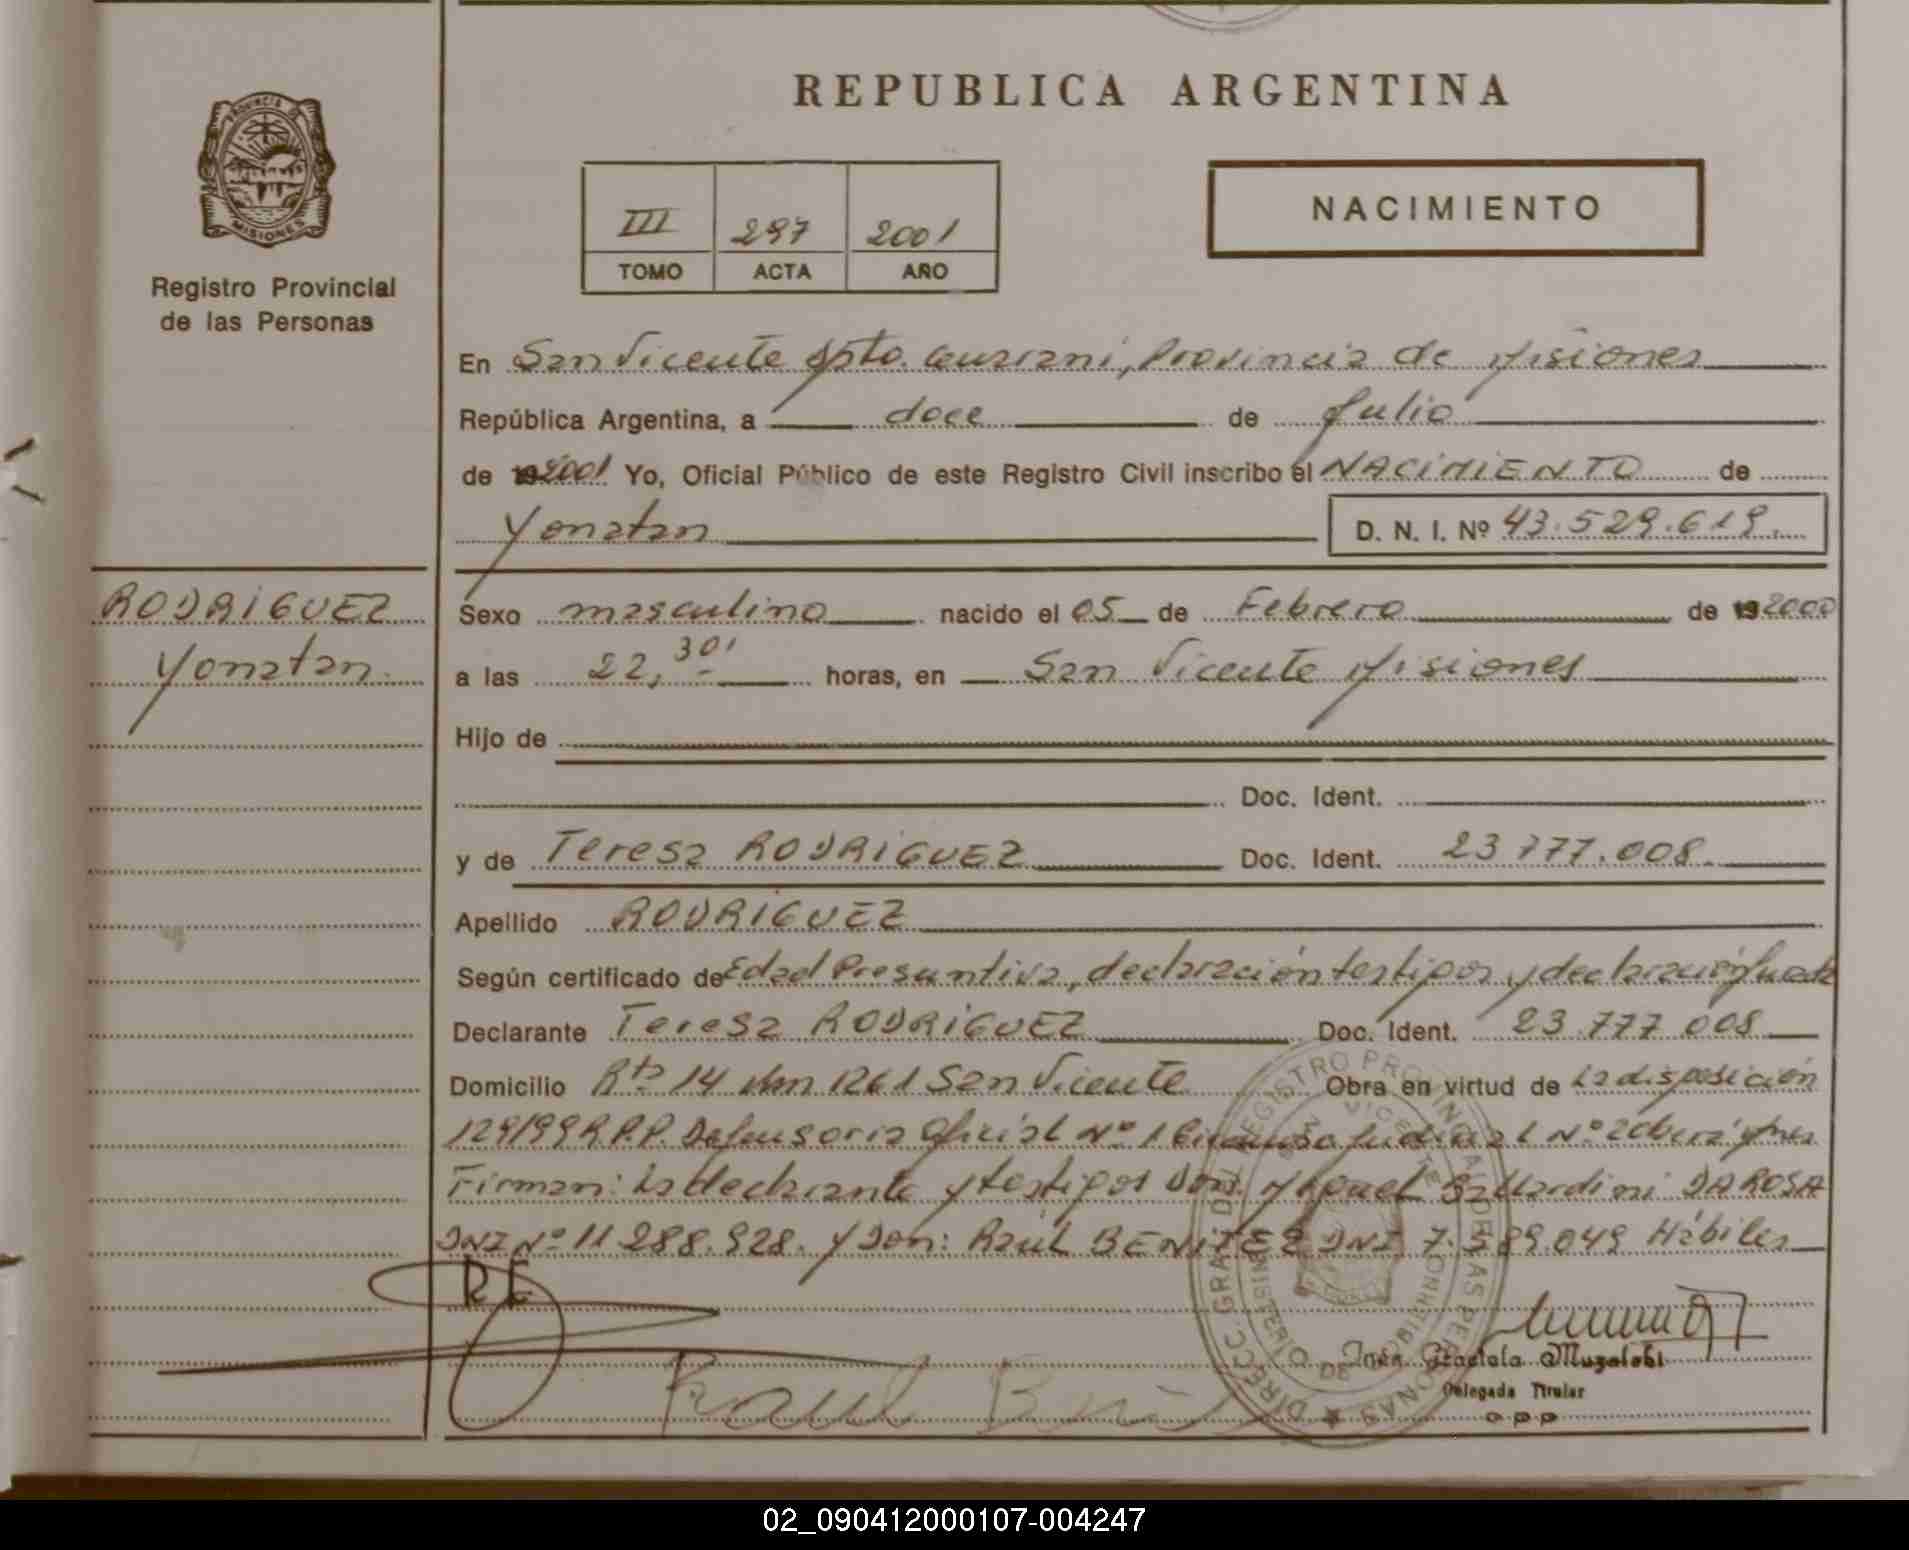 REPUBLICA ARGENTINA
PROVINCIA DE
MISIONES
Registro Provincial
de las Personas
III 297 2001
TOMO ACTA AÑO
NACIMIENTO
En San Vicente Dpto. Guarani, Provincia de Misiones
República Argentina, a doce de Julio
de 192001 Yo, Oficial Público de este Registro Civil inscribo el NACIMIENTO de
Yonatan D. N. I. Nº 43.529.619.
RODRIGUEZ
Yonatan
Sexo masculino nacido el 05 de Febrero de 192000
a las 22,30' horas, en San Vicente Misiones
Hijo de
Doc. Ident.
y de Teresa RODRIGUEZ Doc. Ident. 23.777.008.
Apellido RODRIGUEZ
Según certificado de Edad Presuntiva, declaración testigos y declaración
Declarante Teresa RODRIGUEZ Doc. Ident. 23.777.008
Domicilio Rta 14 km 1261 San Vicente Obra en virtud de la disposición
129/99 R.P.P. Defensoria Oficial Nº 1 Nº 2 Oberá Mnes
Firman: la declarante y testigos Don: Miguel DA ROSA
DNI Nº 11.288.928. y Don: Raúl BENITEZ DNI 7.589.049 Hábiles
R E
Raul
DIRECC. GRAL. DEL REGISTRO PROVINCIAL DE LAS PERSONAS
SAN VICENTE
Graciela
Delegada Titular
02_090412000107-004247